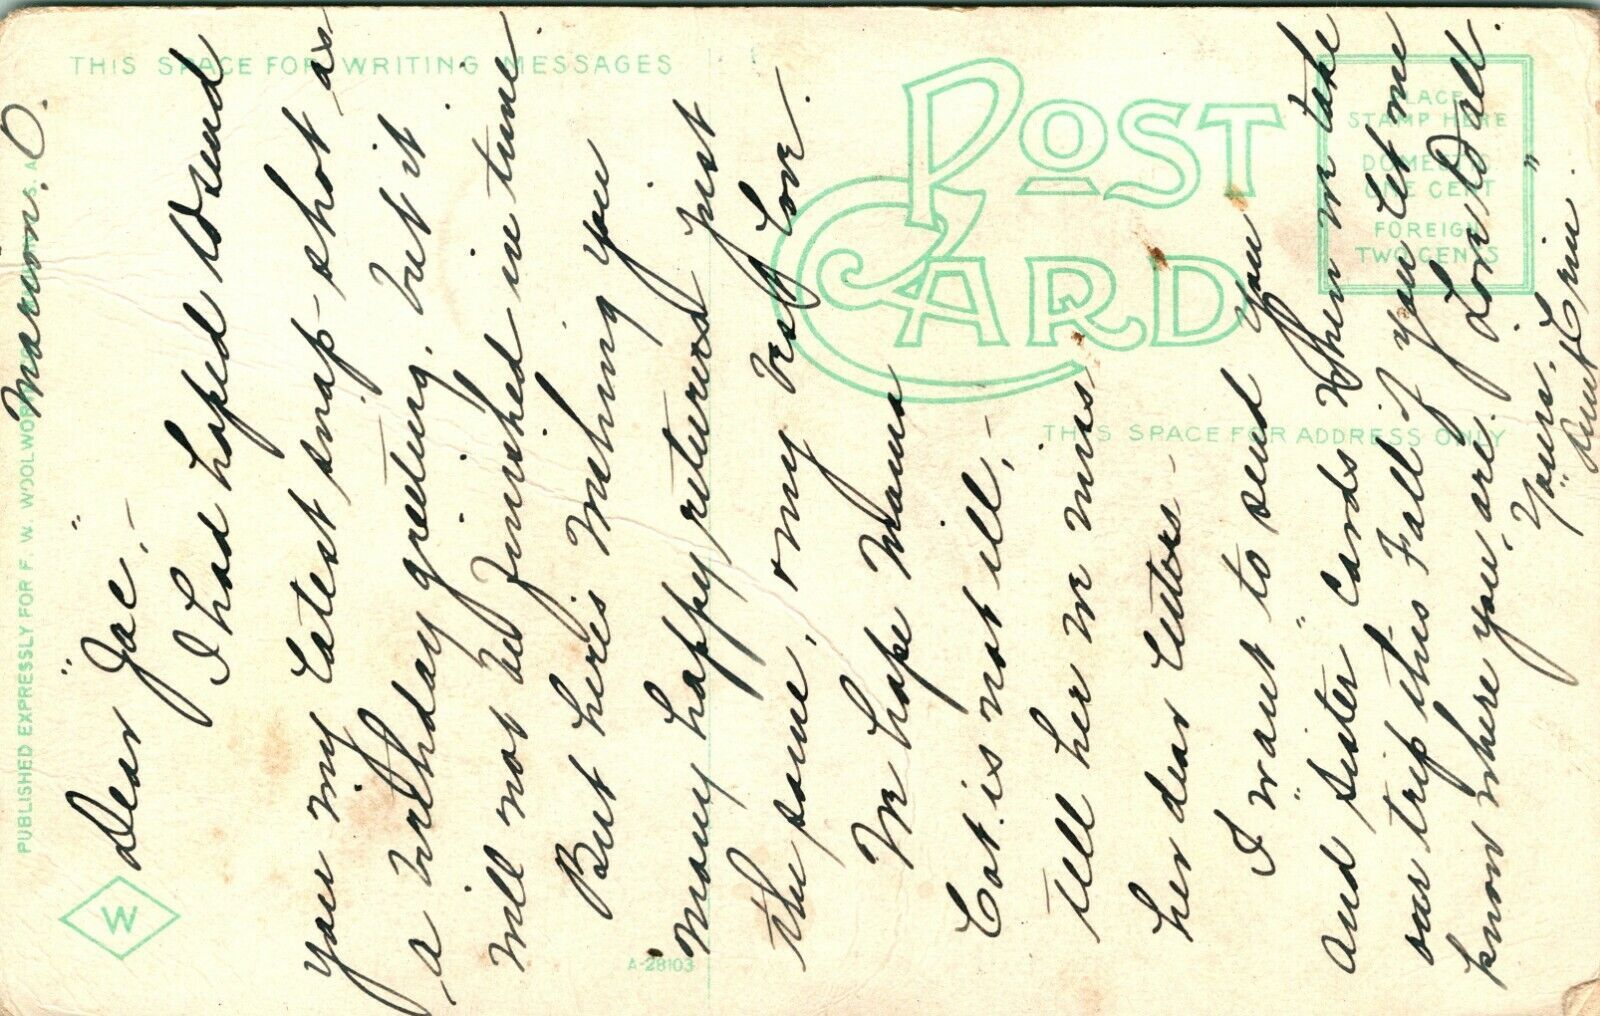 THIS SPACE FOR WRITING MESSAGES
POST CARD
PLACE
STAMP HERE
DOMESTIC
ONE CENT
FOREIGN
TWO CENTS
THIS SPACE FOR ADDRESS ONLY
PUBLISHED EXPRESSLY FOR F. W. WOOLWORTH
W
A-28103
Marion. O.
Dear "Jac",-
I had hoped to send
you my latest snap-shot as
a birthday greeting, but it
will not be finished in time.
But here's wishing you
"Many happy returns" just
the same, & my best love.
We hope Mama
Cat. is not ill,-
tell her we miss
her dear letters-
I want to send you
and "Sister" cards when we take
our trip this Fall if you let me
know where you are. Love to all.
Yours,
"Aunt Erin"